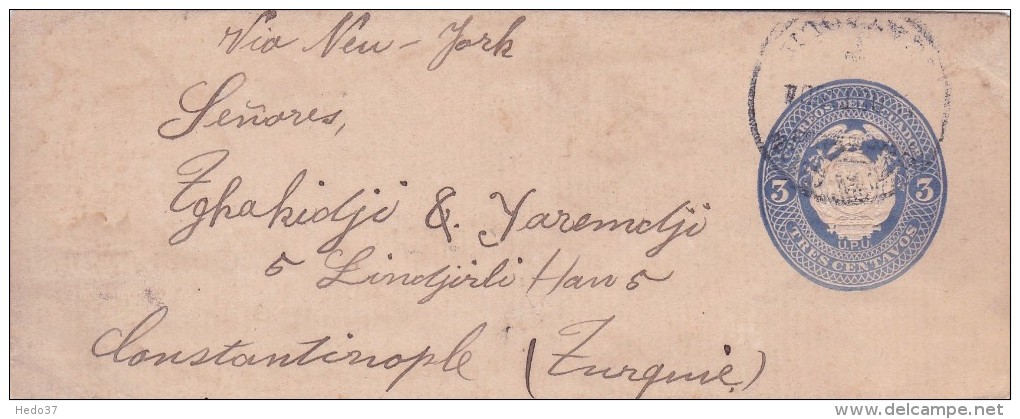 Via New-York
Señores,
Zghakidji & Yaremdji
5 Lindjirli Han 5
Constantinople (Turquie)
CORREOS DEL ECUADOR
3 3
U.P.U.
TRES CENTAVOS
Hedo37
delcampe.net